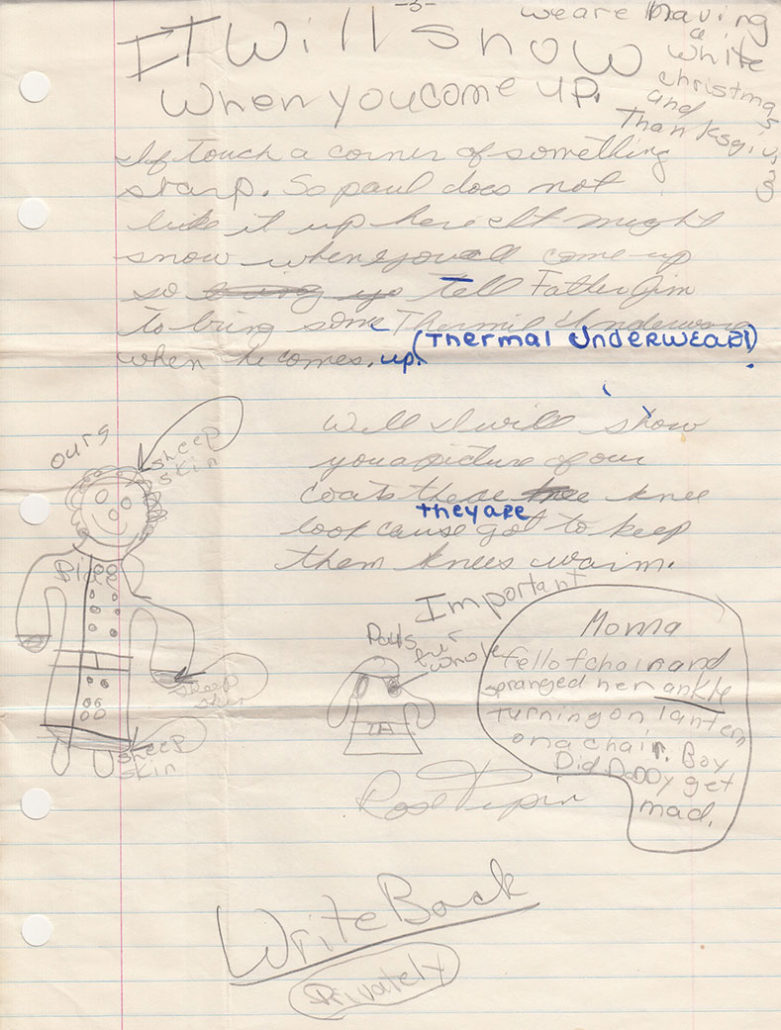 -5-
IT Will snow
when you come up.
we are having
a
white
christmas
and
Thanksgiving
If touch a corner of something
starp. So paul does not
like it up here it might
snow when you all come up
so tell Father Jim
to bring some Thermil Underwear
(Thermal UNDERWEAR)
when he comes. up.
Well I will show
you a picture of our
coats these knee
they are
look cause got to keep
them knees warm.
ours
sheep
skin
sheep
skin
sheep
skin
Important
Pauls
fur
whole
Momma
fell of chair and
spranged her ankle
turning on lantern
on a chair. Boy
Did DaDDy get
mad.
Rose Pipin
Write Back
Privately